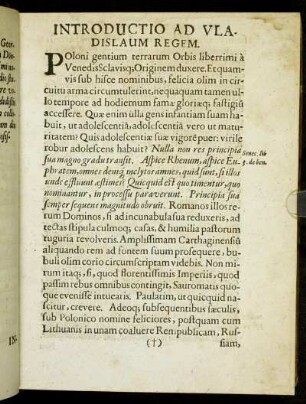 INTRODUCTIO AD VLA-
DISLAUM REGEM.
POloni gentium terrarum Orbis liberrimi à
Venedis Sclavisq; Originem duxere. Et quam-
vis sub hisce nominibus, felicia olim in cir-
cuitu arma circumtulerint, nequaquam tamen ul-
lo tempore ad hodiernum famæ gloriæq; fastigiũ
accessere. Quæ enim ulla gens infantiam suam ha-
buit, ut adolescentiã, adolescentiã vero ut matu-
ritatem? Quis adolescentiæ suæ vigorē puer: virile
robur adolescens habuit? Nulla non res principia
sua magno gradu transit. Aspice Rhenum, aspice Eu-
phratem, omnes denq; inclytos amnes, quid sunt, si illos
unde effluunt æstimes? Quicquid est quo timentur, quo
nominantur, in processu paraverunt. Principia sua
semper sequens magnitudo obruit. Romanos illos re-
rum Dominos, si ad incunabula sua reduxeris, ad te-
ctas stipula culmoq; casas, & humilia pastorum
tuguria revolveris. Amplissimam Carthaginensiũ
aliquando rem ad fontem suum prosequere, bu-
buli olim corio circumscriptam videbis. Non mi-
rum itaq; si, quod florentissimis Imperiis, quod
passim rebus omnibus contingit, Sauromatis quo-
que evenisse intuearis. Paulatim, ut quicquid na-
scitur, crevere. Adeoq; subsequentibus sæculis,
sub Polonico nomine feliciores, postquam cum
Lithuanis in unam coaluere Rempublicam, Rus-
(†)
siam,